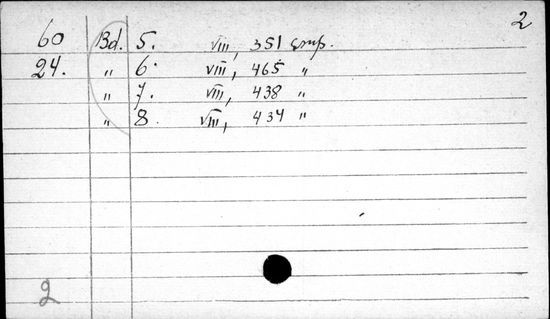 2
60 Bd. 5. VIII, 351 стр.
24. " 6. VIII, 465 "
" 7. VIII, 438 "
" 8. VIII, 434 "
2